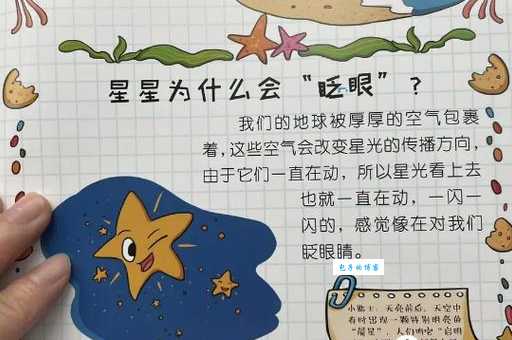 星星为什么会“眨眼”？
我们的地球被厚厚的空气包裹
着，这些空气会改变星光的传播方向，
由于它们一直在动，所以星光看上去
也就一直在动，一闪一
闪的，感觉像在对我们
眨眼睛。
包子的博客
小贴士：天亮前后，天空中
有时出现一颗特别明亮的
“晨星”，人们叫它“启明